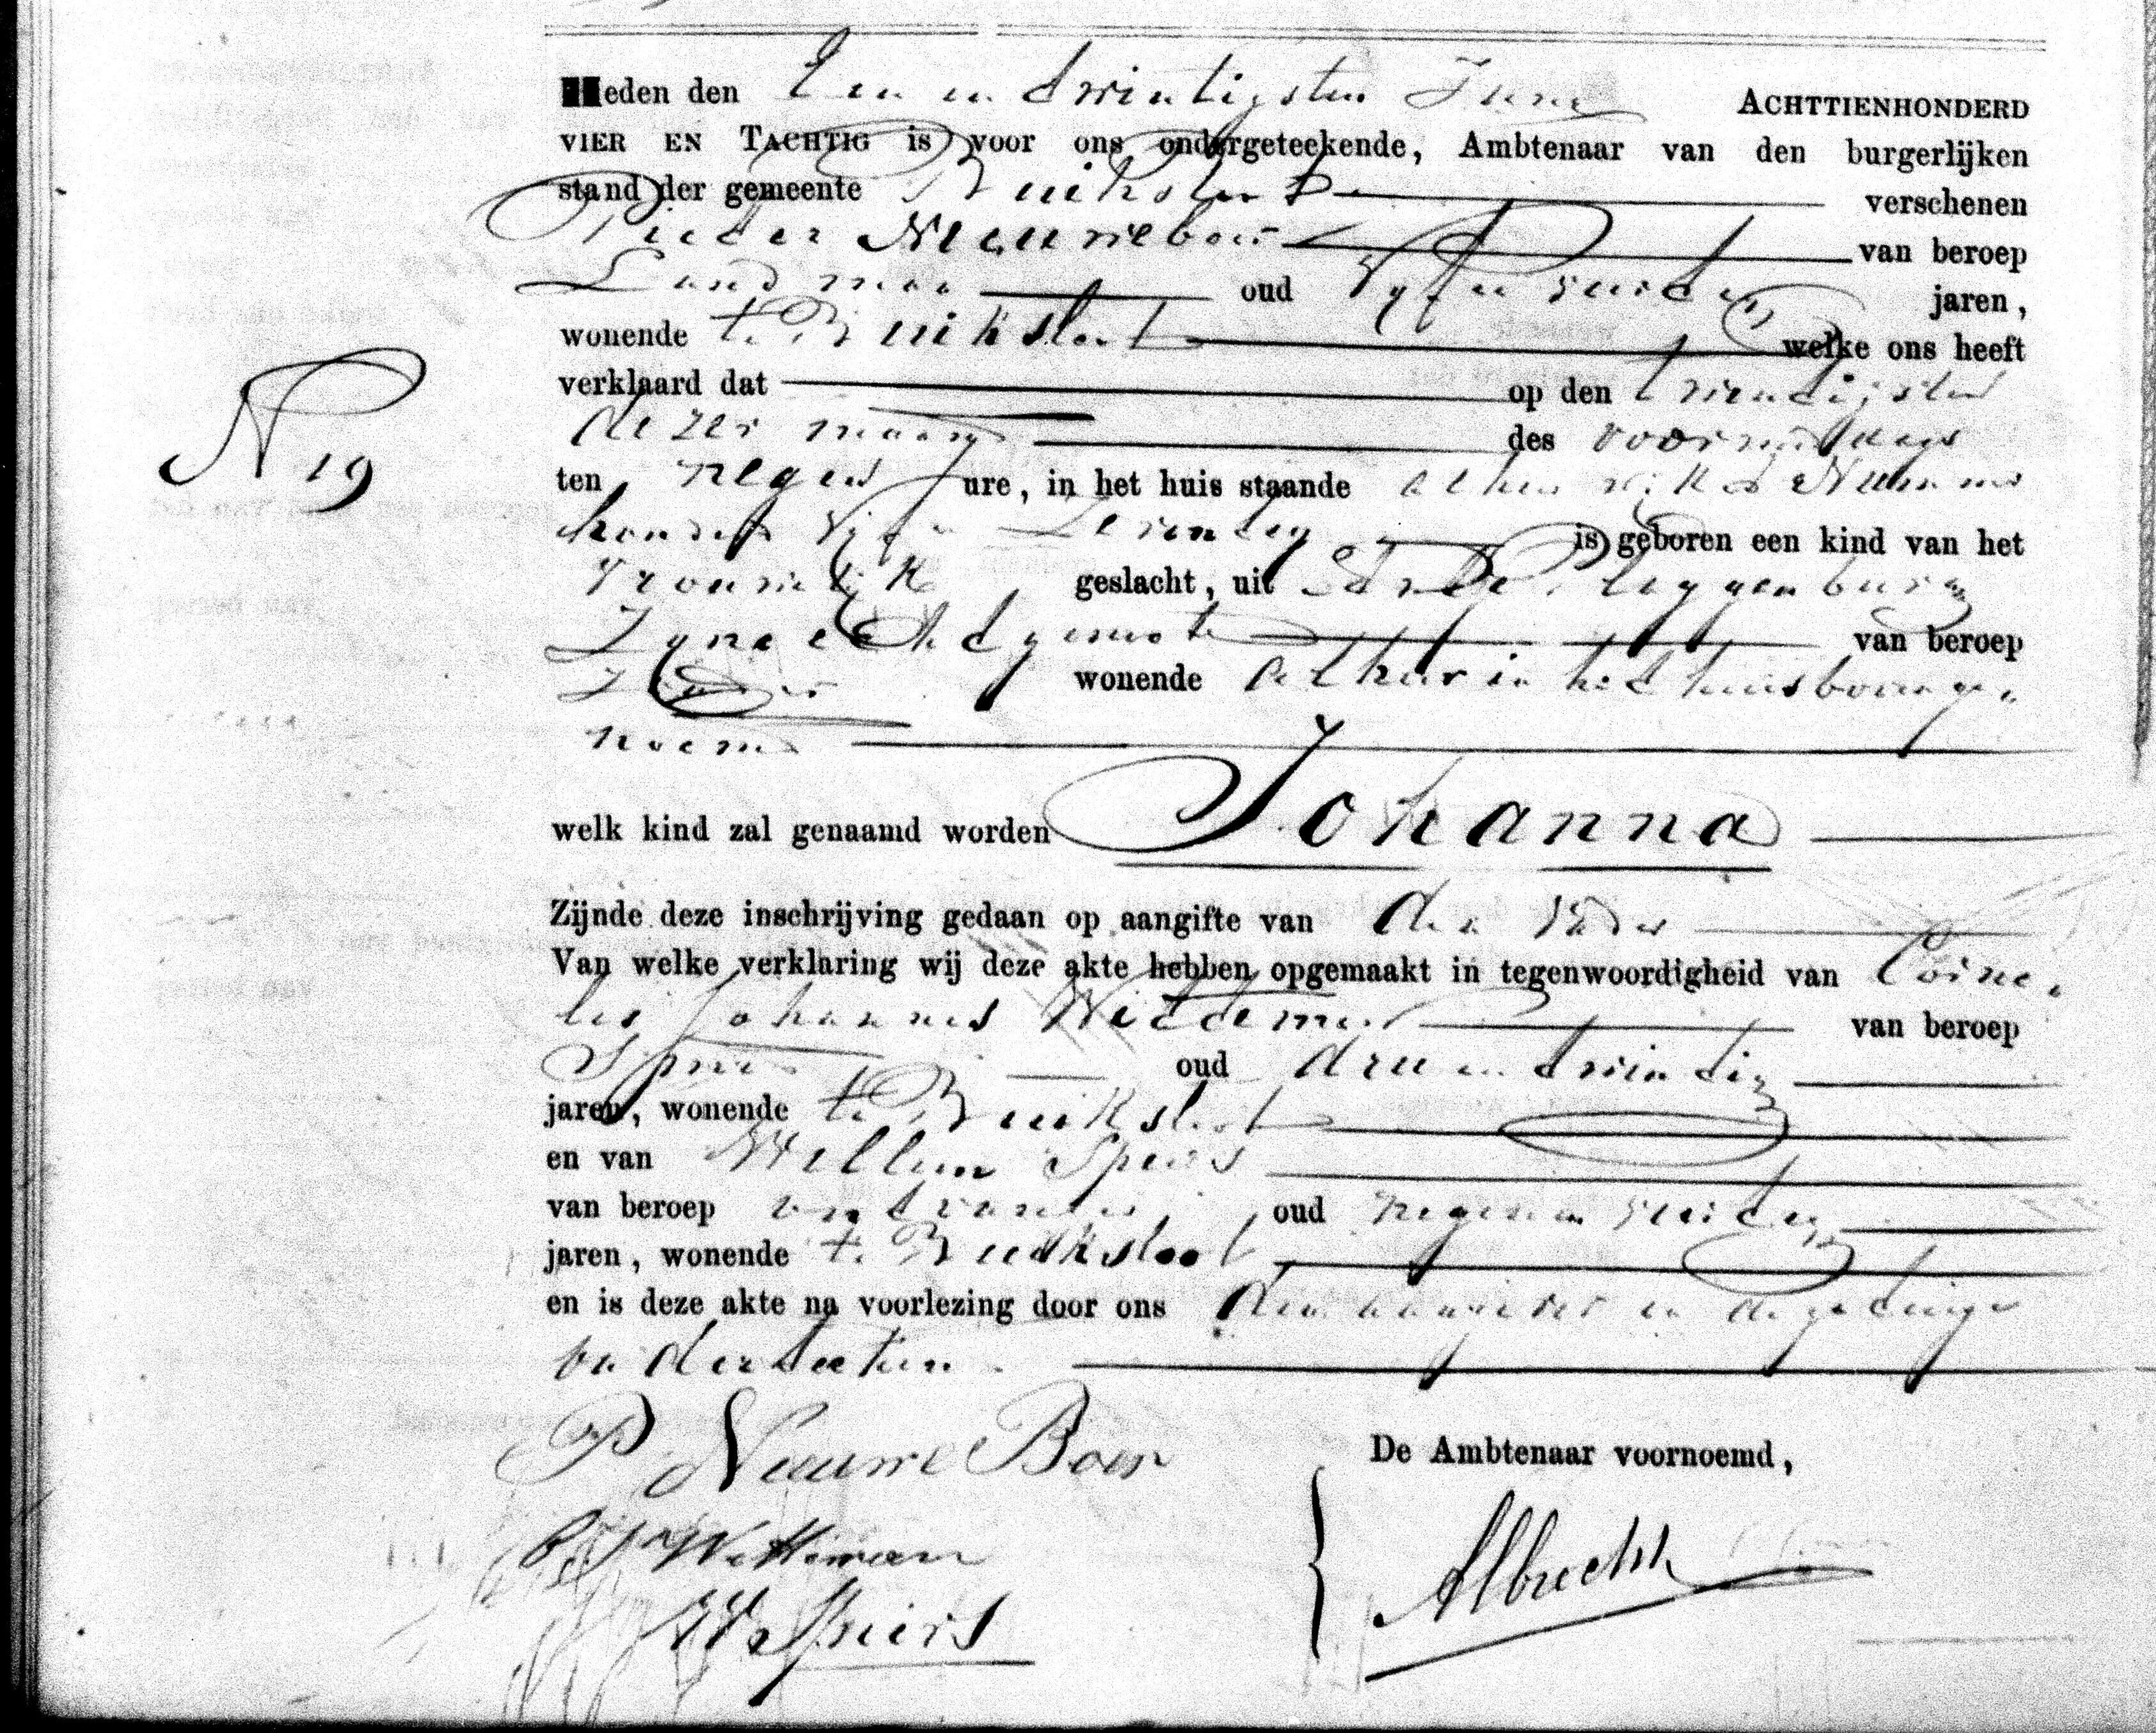 Heden den Een en twintigsten Junij ACHTTIENHONDERD
VIER EN TACHTIG is voor ons ondergeteekende, Ambtenaar van den burgerlijken
stand der gemeente Buiksloot verschenen
Pieter Nieuweboer van beroep
Landman oud Vijf en veertig jaren,
wonende te Buiksloot welke ons heeft
verklaard dat op den twintigsten
dezer maand des voormiddags
ten negen ure, in het huis staande alhier wijk Nummer
honderd Vijf en Zeventig is geboren een kind van het
Vrouwelijk geslacht, uit Pleggenburg
Zijne echtgenoote van beroep
Zonder wonende alhier in het huis bovenge-
noemd
N 19
welk kind zal genaamd worden Johanna
Zijnde deze inschrijving gedaan op aangifte van den Vader
Van welke verklaring wij deze akte hebben opgemaakt in tegenwoordigheid van Corne-
lis Johannes van beroep
oud drie en twintig
jaren, wonende te Buiksloot
en van Willem Spiers
van beroep oud negen en veertig
jaren, wonende te Buiksloot
en is deze akte na voorlezing door ons den aangever en de getuigen
onderteekend
P Nieuwe Boer
De Ambtenaar voornoemd,
W Spiers
Albrecht